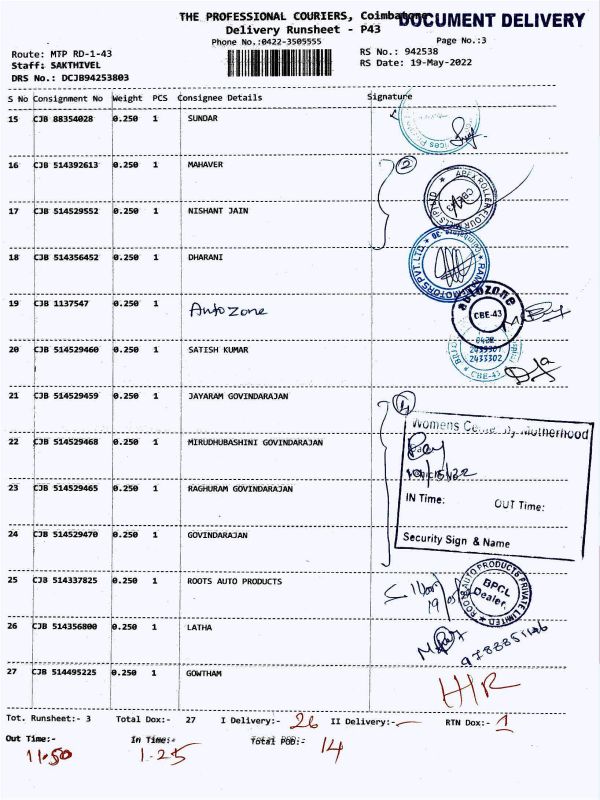 THE PROFESSIONAL COURIERS, Coimbatore
DOCUMENT DELIVERY
Delivery Runsheet - P43
Phone No.:0422-3505555
Page No.:3
Route: MTP RD-1-43
RS No.: 942538
Staff: SAKTHIVEL
RS Date: 19-May-2022
DRS No.: DCJB94253803
S No Consignment No Weight PCS Consignee Details Signature
15 CJB 88354028 0.250 1 SUNDAR
16 CJB 514392613 0.250 1 MAHAVER
2
APEX ROLLER FLOUR MILLS (P) LTD
17 CJB 514529552 0.250 1 NISHANT JAIN
18 CJB 514356452 0.250 1 DHARANI
19 CJB 1137547 0.250 1 AutoZone
autozone
CBE-43
20 CJB 514529460 0.250 1 SATISH KUMAR
0422
2433302
CBE-43
21 CJB 514529459 0.250 1 JAYARAM GOVINDARAJAN
4
Womens Motherhood
22 CJB 514529468 0.250 1 MIRUDHUBASHINI GOVINDARAJAN
23 CJB 514529465 0.250 1 RAGHURAM GOVINDARAJAN
IN Time: OUT Time:
24 CJB 514529470 0.250 1 GOVINDARAJAN
Security Sign & Name
25 CJB 514337825 0.250 1 ROOTS AUTO PRODUCTS
ROOTS AUTO PRODUCTS PRIVATE LIMITED
BPCL
Dealer.
26 CJB 514356800 0.250 1 LATHA
27 CJB 514495225 0.250 1 GOWTHAM
Tot. Runsheet:- 3 Total Dox:- 27 I Delivery:- 26 II Delivery:- RTN Dox:- 1
Out Time:- In Time:- Total POD:- 14
11.50 1.25